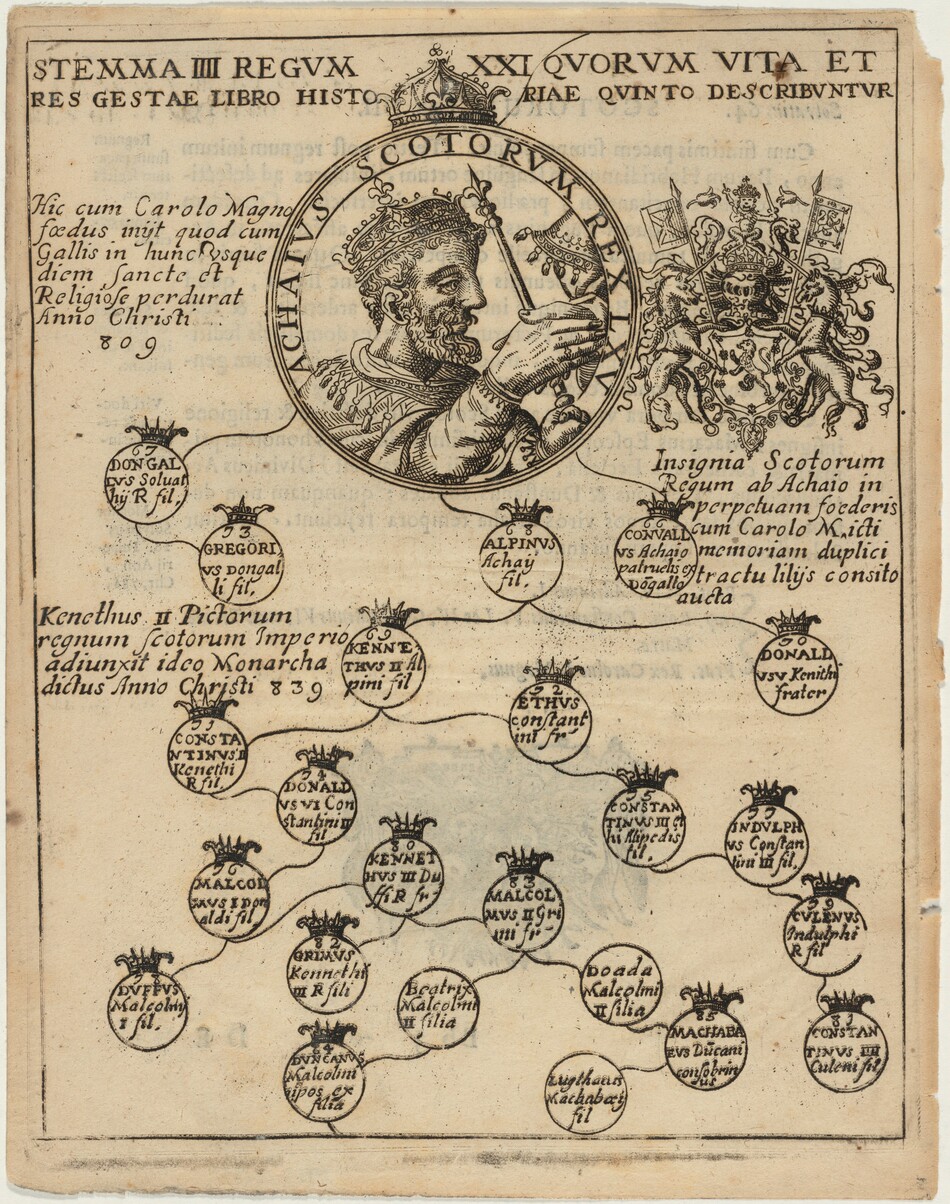 STEMMA IIII REGVM XXI QVORVM VITA ET
RES GESTAE LIBRO HISTO RIAE QVINTO DESCRIBVNTVR
ACHAIVS SCOTORVM REX LXV
Hic cum Carolo Magno
fœdus inijt quod cum
Gallis in hunc vsque
diem sancte et
Religiose perdurat
Anno Christi
809
Insignia Scotorum
Regum ab Achaio in
perpetuam foederis
cum Carolo M. icti
memoriam duplici
tractu lilijs consito
aucta
67
DONGAL
LVS Soluat
hij R fil.
73
GREGORI
VS Dongal
li fil.
68
ALPINVS
Achaij
fil.
66
CONVALL
VS Achaio
patruelis ex
Dōgallo
Kenethus II Pictorum
regnum scotorum Imperio
adiunxit ideo Monarcha
dictus Anno Christi 839
69
KENNE
THVS II Al
pini fil
70
DONALL
VS V Kenithi
frater
71
CONSTA
NTINVS II
Kenethi
R fil.
72
ETHVS
constant
ini fr
74
DONALL
VS VI Con
stantini II
fil
75
CONSTAN
TINVS III et
hi Alipedis
fil.
77
INDVLPH
VS Constan
tini III fil.
76
MALCOL
MVS I Don
aldi fil
80
KENNET
HVS III Du
ffi R fr
83
MALCOL
MVS II Gri
mi fr
79
CVLENVS
Indulphi
R fil
78
DVFFVS
Malcolmi
I fil.
82
GRIMVS
Kennethi
III R fili
Beatrix
Malcolmi
II filia
Doada
Malcolmi
II filia
85
MACHABA
EVS Dūcani
consobrin
us
81
CONSTAN
TINVS IIII
Culeni fil
84
DVNCANVS
Malcolmi
nipos ex
filia
Lugthacus
Machabæij
fil